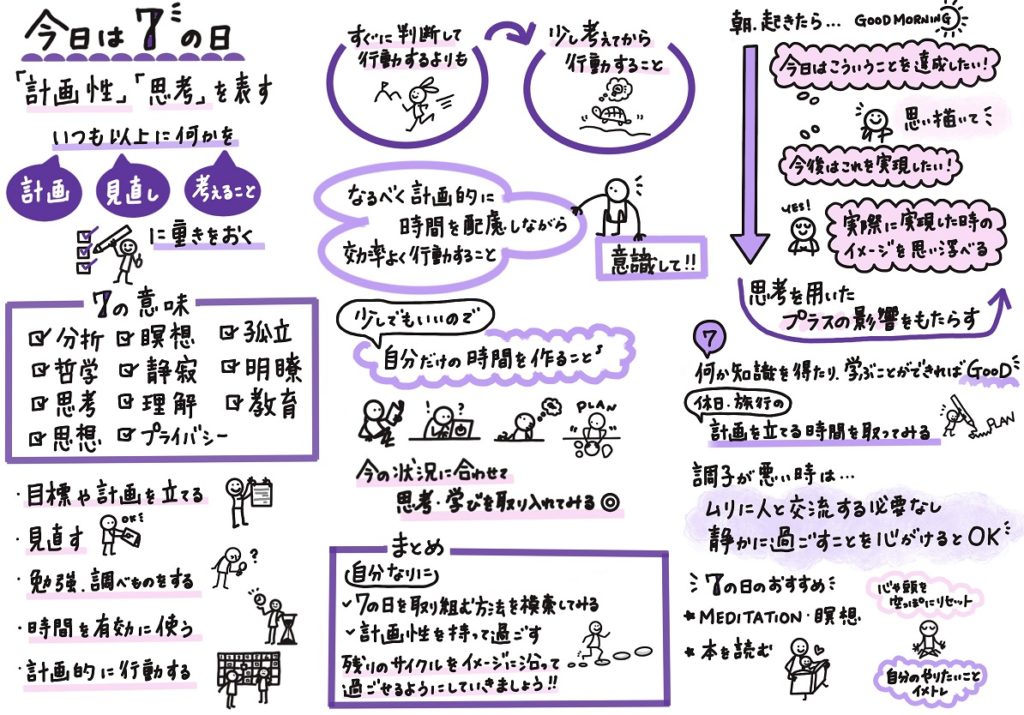 今日は7の日
「計画性」「思考」を表す
いつも以上に何かを
計画
見直し
考えること
に重きをおく
7の意味
分析
瞑想
孤立
哲学
静寂
明瞭
思考
理解
教育
思想
プライバシー
・目標や計画を立てる
・見直す
OK!
・勉強、調べものをする
?
・時間を有効に使う
・計画的に行動する
すぐに判断して
行動するよりも
少し考えてから
行動すること
なるべく計画的に
時間を配慮しながら
効率よく行動すること
意識して!!
少しでもいいので
自分だけの時間を作ること
!?
PLAN
今の状況に合わせて
思考・学びを取り入れてみる◎
まとめ
自分なりに
✓7の日を取り組む方法を模索してみる
✓計画性を持って過ごす
残りのサイクルをイメージに沿って
過ごせるようにしていきましょう!!
朝、起きたら… GOOD MORNING
今日はこういうことを達成したい!
思い描いて
今後はこれを実現したい!
YES!
実際に実現した時の
イメージを思い浮べる
思考を用いた
プラスの影響をもたらす
7
何か知識を得たり、学ぶことができればGOOD
休日・旅行の
計画を立てる時間を取ってみる
PLAN
調子が悪い時は…
ムリに人と交流する必要なし
静かに過ごすことを心がけるとOK
7の日のおすすめ
★MEDITATION・瞑想
★本を読む
心や頭を
空っぽにリセット
自分のやりたいこと
イメトレ